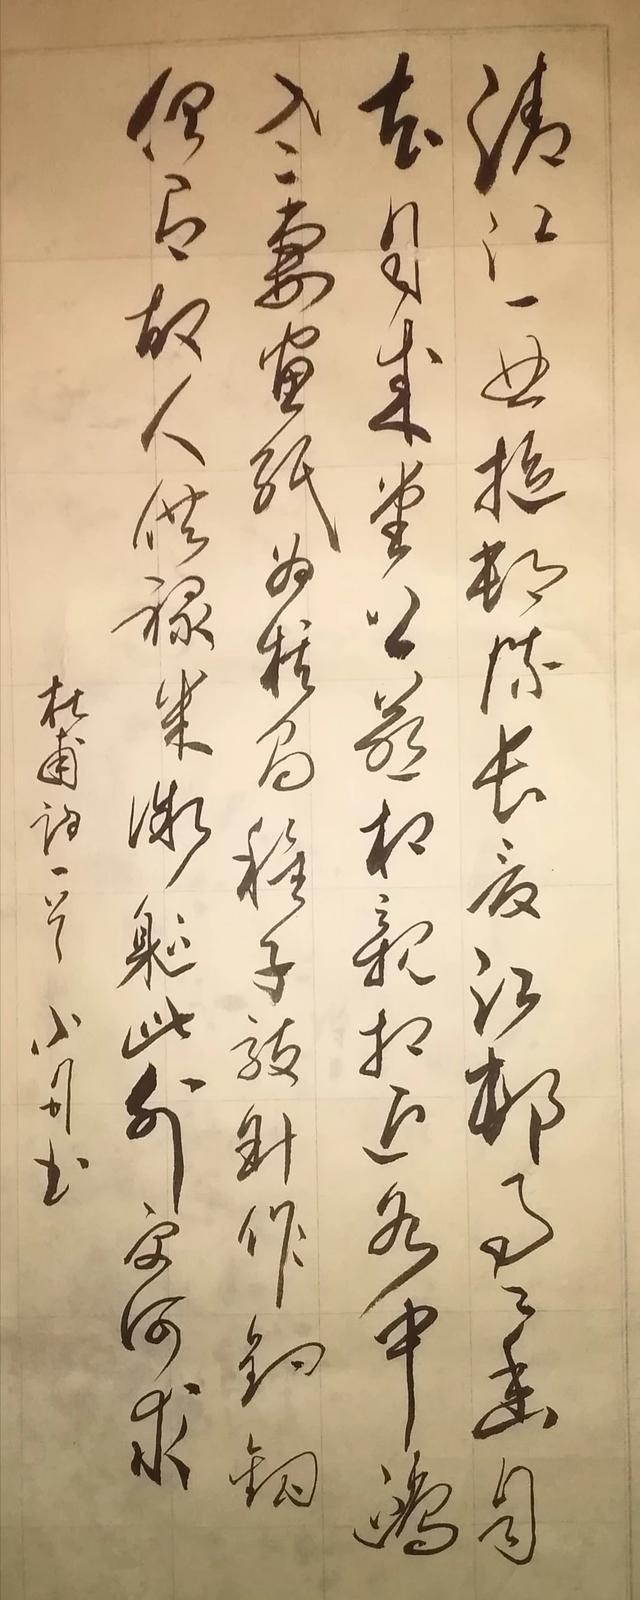 清江一曲抱村流長夏江村事々幽自
去自来堂上燕相親相近水中鷗
老妻畫紙为棋局稚子敲針作釣鈎
但有故人供禄米微軀此外更何求
杜甫詩一首 小舟书